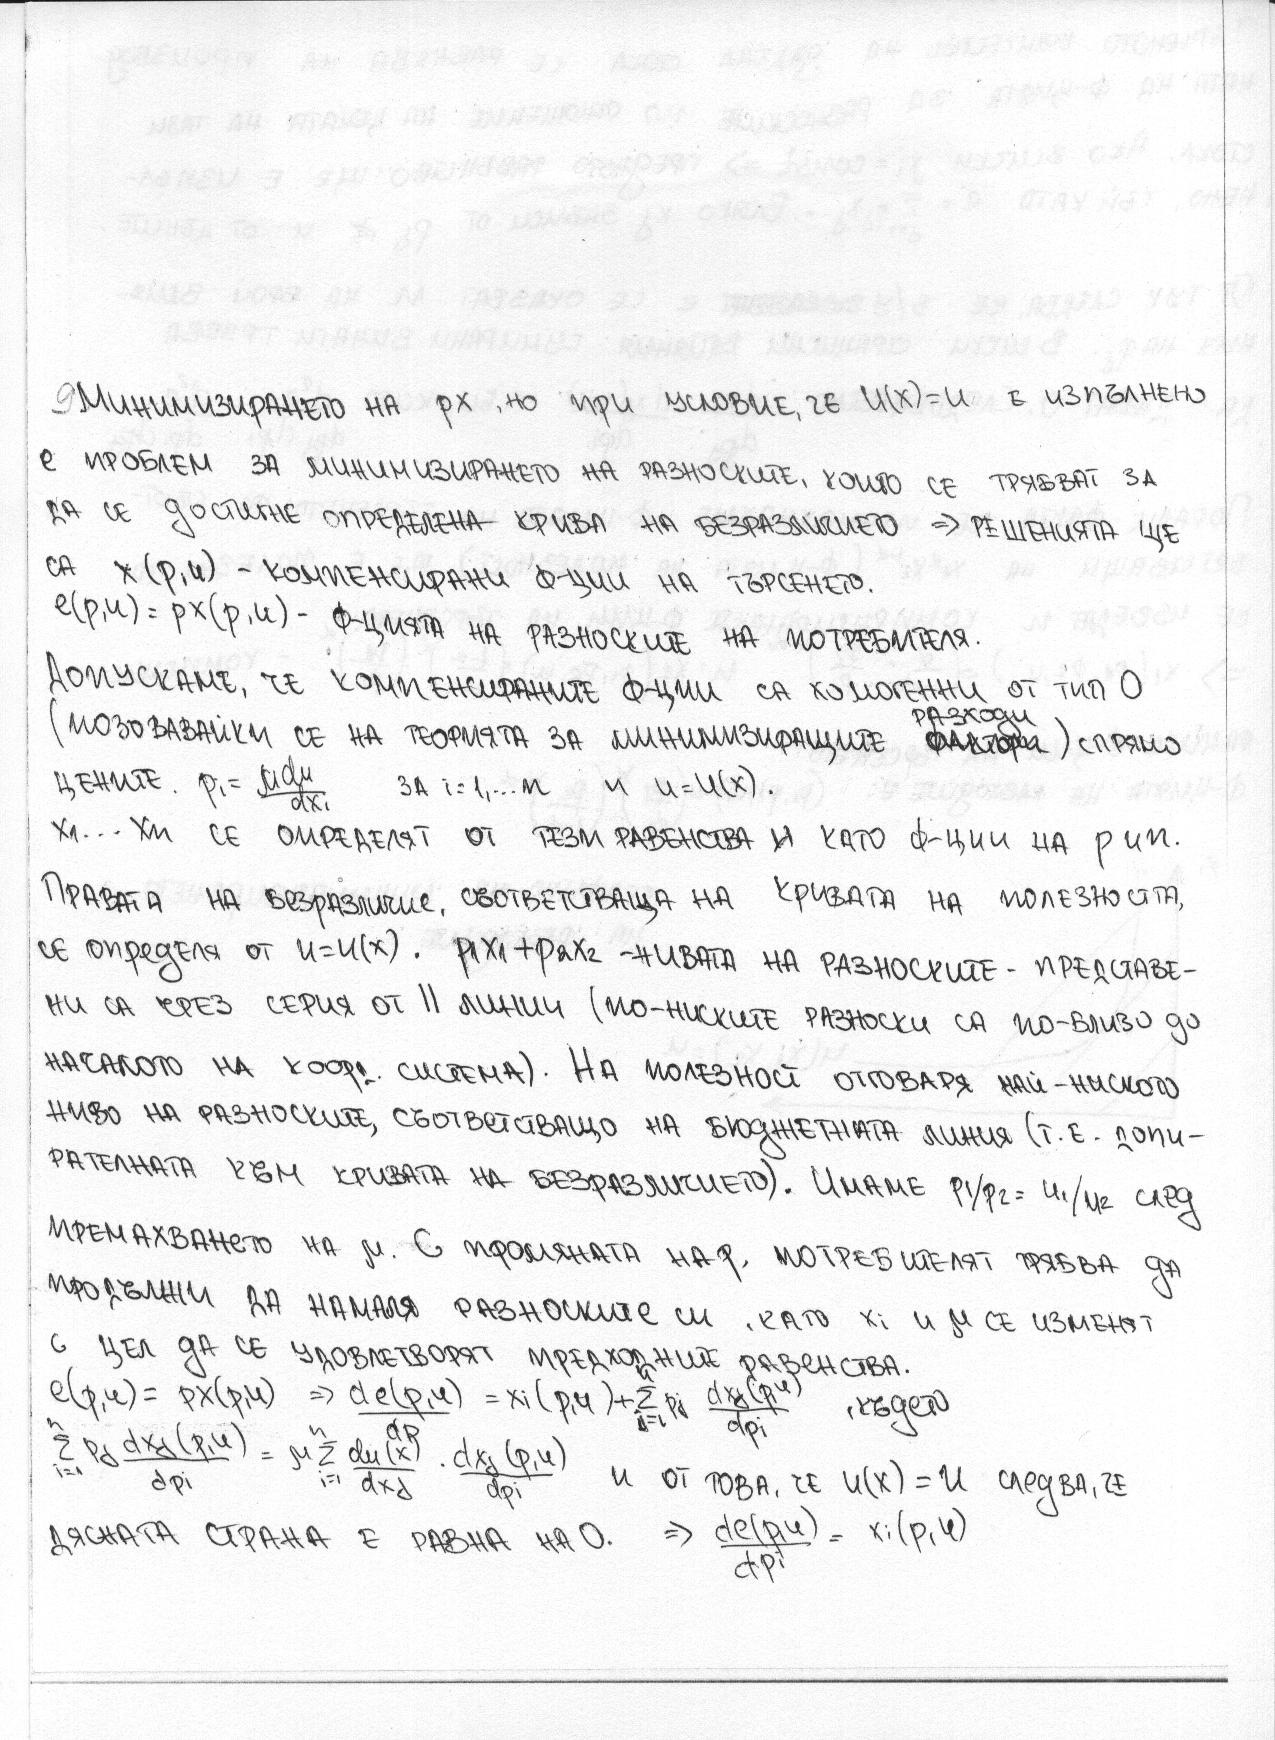 9 Минимизирането на px, но при условие, че U(x)=u е изпълнено
е проблем за минимизирането на разноските, които се трябват за
да се достигне определена крива на безразличието => решенията ще
са x(p,u) - компенсирани ф-ции на търсенето.
e(p,u) = px(p,u) - ф-цията на разноските на потребителя.
Допускаме, че компенсираните ф-ции са хомогенни от тип 0
(позовавайки се на теорията за минимизиращите разходи) спрямо
цените. pi = μdu/dxi за i=1,...n и u=U(x).
x1...xn се определят от тези равенства и като ф-ции на p и n.
Правата на безразличие, съответстваща на кривата на полезността,
се определя от u=u(x). p1x1+p2x2 - нивата на разноските - представе-
ни са чрез серия от || линии (по-ниските разноски са по-близо до
началото на коорд. система). На полезност отговаря най-ниското
ниво на разноските, съответстващо на бюджетната линия (т.е. допи-
рателната към кривата на безразличието). Имаме p1/p2 = u1/u2 след
премахването на μ. С промяната на p, потребителят трябва да
продължи да намаля разноските си, като xi и μ се изменят
с цел да се удовлетворят предходните равенства.
e(p,u) = px(p,u) => de(p,u)/dp = xi(p,u) + Σ(j=1..n) pj dxj(p,u)/dpi, където
Σ(i=1..n) pj dxj(p,u)/dpi = μ Σ(i=1..n) du(x)/dxj . dxj(p,u)/dpi и от това, че u(x)=u следва, че
дясната страна е равна на 0. => de(p,u)/dpi = xi(p,u)